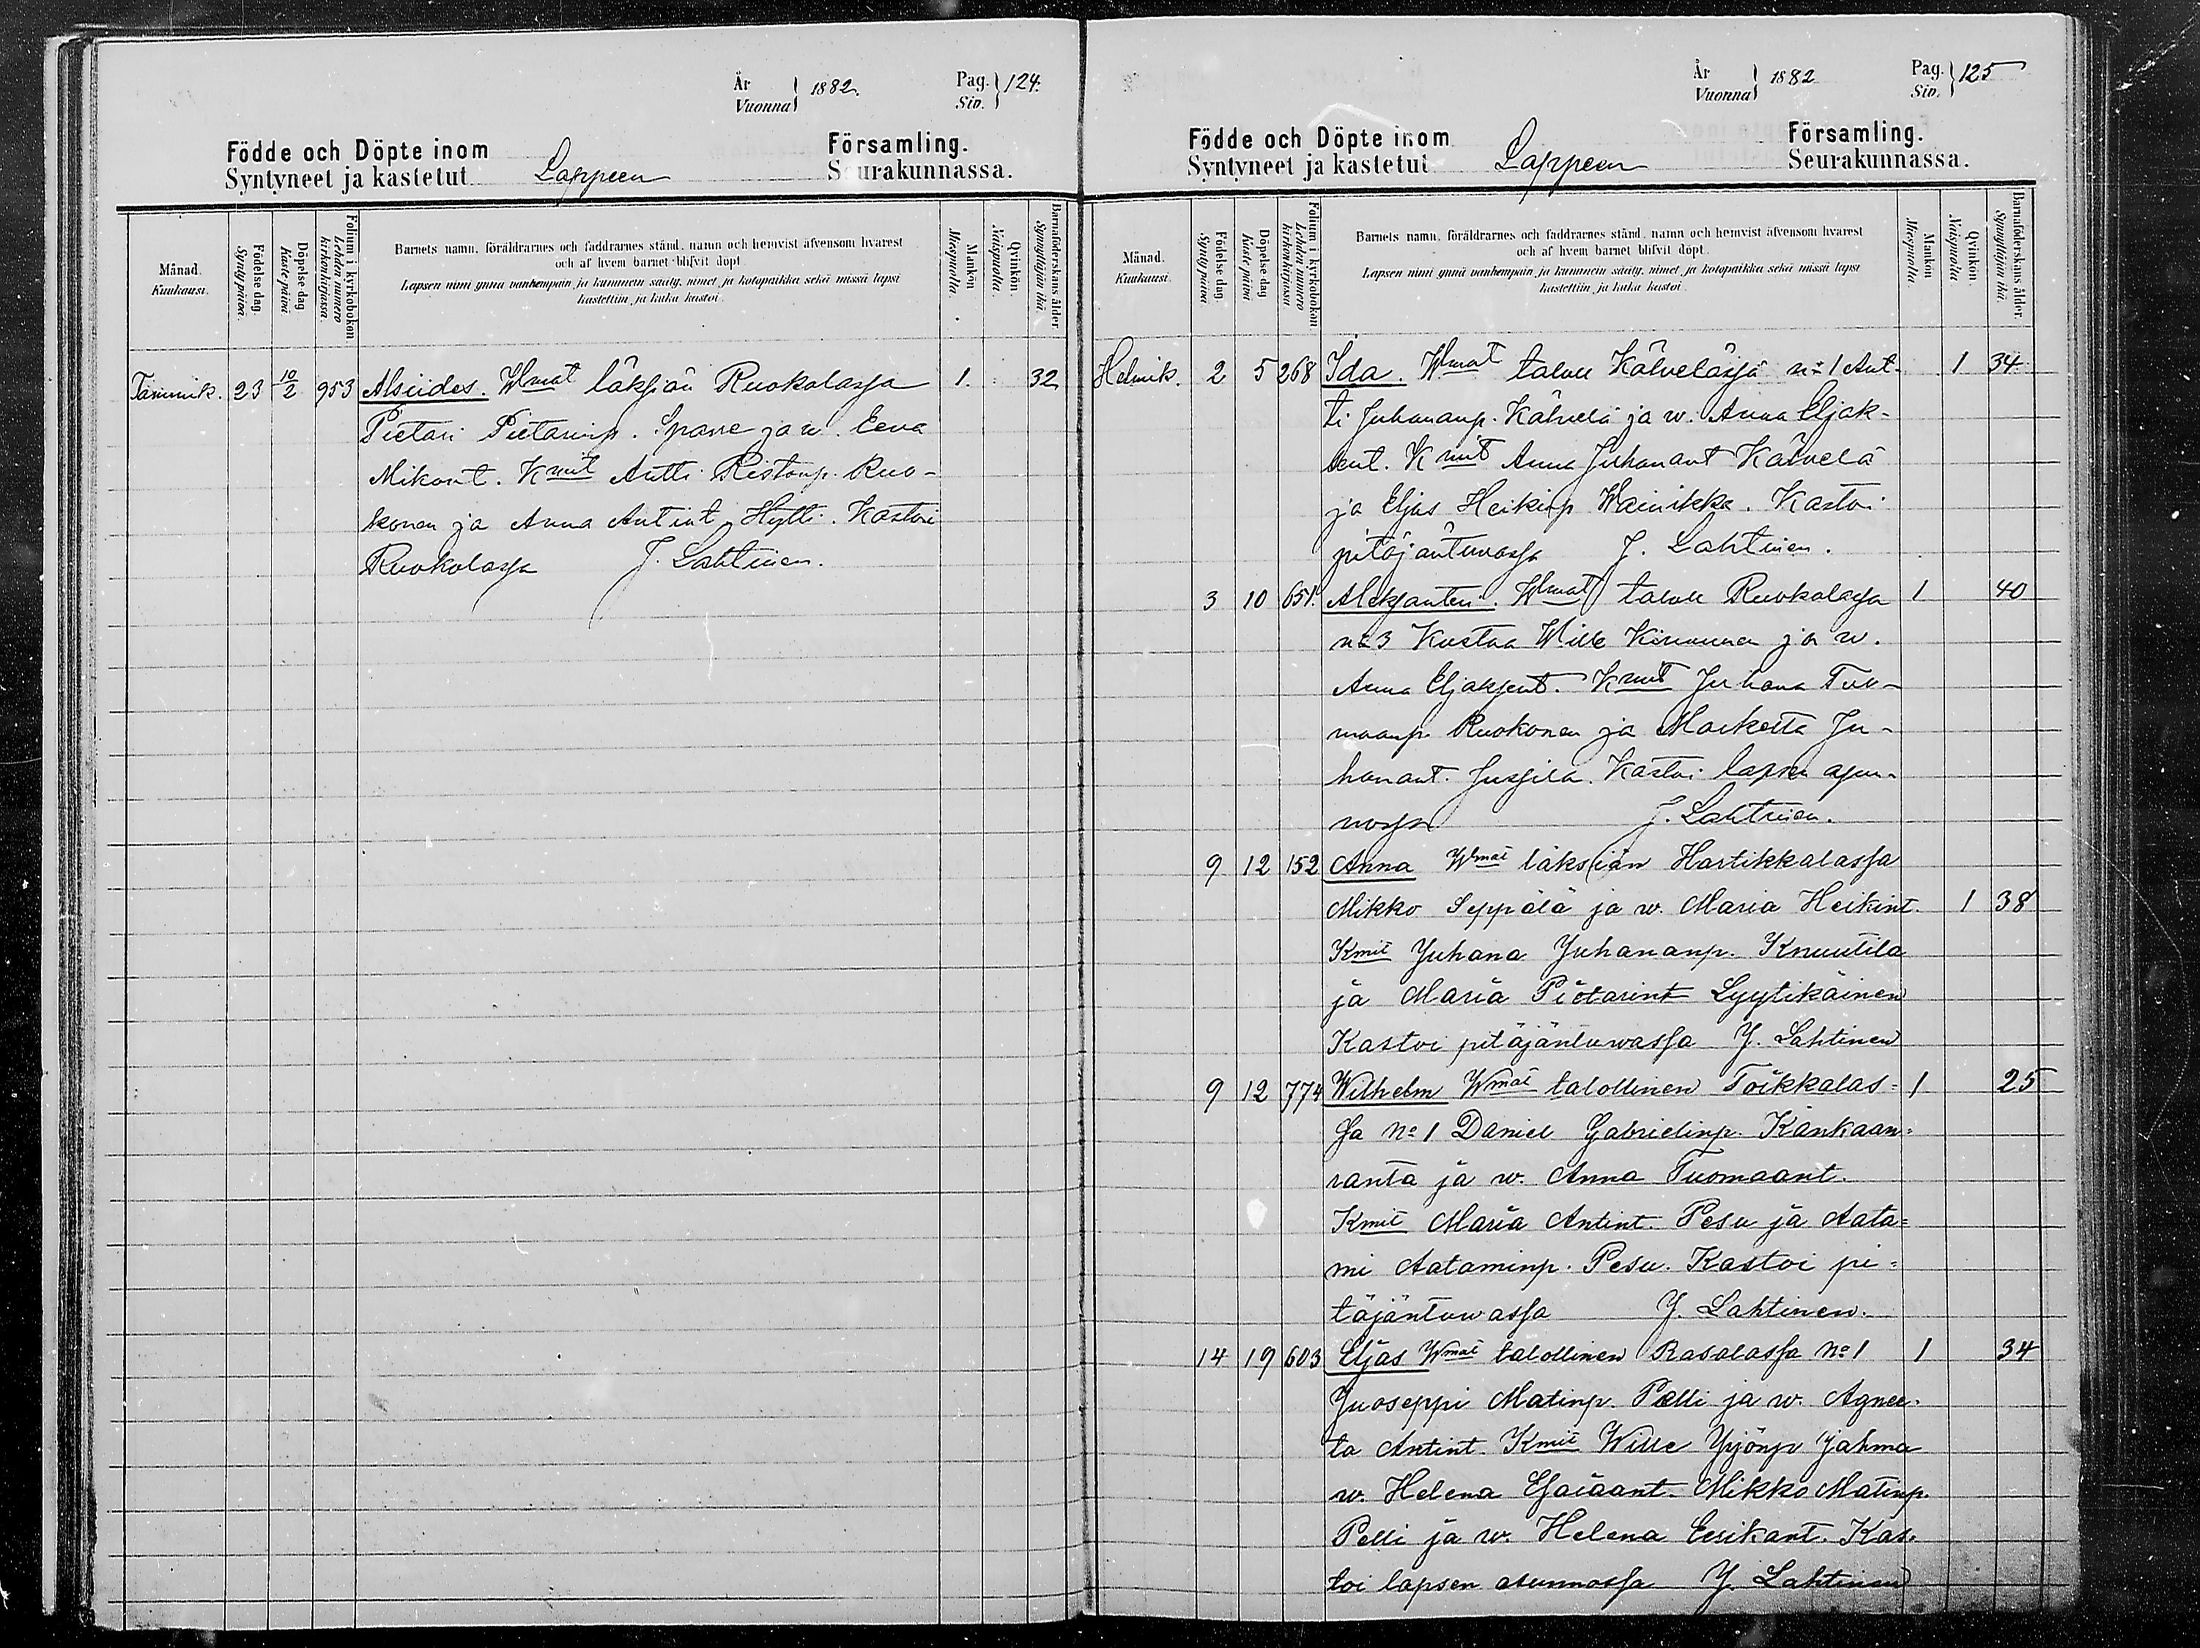 År
Vuonna 1882.
Pag.
Siv. 124.
Födde och Döpte inom
Syntyneet ja kastetut Lappeen
Församling.
Seurakunnassa.
Månad.
Kuukausi.
Födelse dag.
Synty päivä.
Döpelse dag
Kaste päivä
Folium i kyrkobokon
Lehden numero
kirkonkirjassa.
Barnets namn, föräldrarnes och faddrarnes stånd, namn och hemvist äfvensom hvarest
och af hvem barnet blifvit döpt.
Lapsen nimi ynnä vanhempain ja kummein sääty, nimet ja kotopaikka sekä missä lapsi
kastettiin ja kuka kastoi.
Mankön
Miespuolia.
Qvinkön.
Naispuolia.
Barnaföderskans ålder
Synnyttäjän ikä.
Tammik. 23 10/2 953 Alsiides. Wmat läksiän Ruokolassa 1. 32
Pietari Pietarinp. Sparre ja w. Eeva
Mikont. Kmit Antti Ristonp. Ruo-
konen ja Anna Antint. Hytti. Kastoi
Ruokolassa J. Lahtinen.
År
Vuonna 1882
Pag.
Siv. 125
Födde och Döpte inom
Syntyneet ja kastetut Lappeen
Församling.
Seurakunnassa.
Månad.
Kuukausi.
Födelse dag.
Synty päivä.
Döpelse dag
Kaste päivä
Folium i kyrkobokon
Lehden numero
kirkonkirjassa
Barnets namn, föräldrarnes och faddrarnes stånd, namn och hemvist äfvensom hvarest
och af hvem barnet blifvit döpt.
Lapsen nimi ynnä vanhempain ja kummein sääty, nimet ja kotopaikka sekä missä lapsi
kastettiin ja kuka kastoi.
Mankön
Miespuolia
Qvinkön.
Naispuolia
Barnaföderskans ålder
Synnyttäjän ikä.
Helmik. 2 5 268 Ida. Wmat taloll Kälveläsjä no 1 Ant- 1 34
ti Juhananp. Kälvelä ja w. Anna Eljak-
sent. Kmit Anna Juhanant Kälvelä
ja Eljas Heikinp Wainikka. Kastoi
pitäjäntuvassa J. Lahtinen.
3 10 651. Aleksanteri. Wmat taloll Ruokolassa 1 40
no 3 Kustaa Wille Kinnunen ja w.
Anna Eljaksent. Kmit Juhana Tuo-
maanp. Ruokonen ja Marketta Ju-
hanant. Jussila. Kastoi lapsen asun-
nossa J. Lahtinen.
9 12 152 Anna Wmat läksiän Hartikkalassa
Mikko Seppälä ja w. Maria Heikint. 1 38
Kmit Juhana Juhananp. Knuutila
ja Maria Pietarint Lyytikäinen
Kastoi pitäjäntuwassa J. Lahtinen
9 12 774 Wilhelm Wmat talollinen Toikkalas= 1 25
sa No 1 Daniel Gabrielinp. Kankaan=
ranta ja w. Anna Tuomaant.
Kmit Maria Antint. Pesu ja Aata=
mi Aataminp. Pesu. Kastoi pi=
täjäntuwassa J. Lahtinen.
14 19 603 Eljas Wmat talollinen Rasalassa No 1 1 34
Juoseppi Matinp. Pelli ja w. Agnee-
ta Antint. Kmit Wille Yrjönp Jahma
w. Helena Esaiaant. Mikko Matinp.
Pelli ja w. Helena Eerikant. Kas-
toi lapsen asunnossa J. Lahtinen